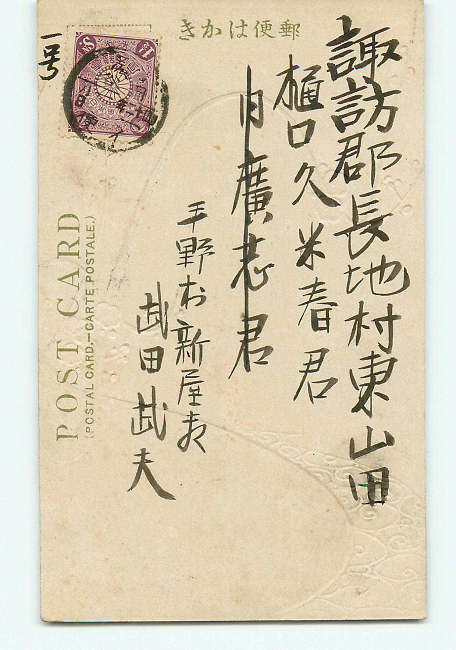 郵便はかき
諏訪郡長地村東山田
樋口久米春君
内廣志君
平野村新屋敷
武田武夫
一号
POST CARD
(POSTAL CARD.—CARTE POSTALE.)